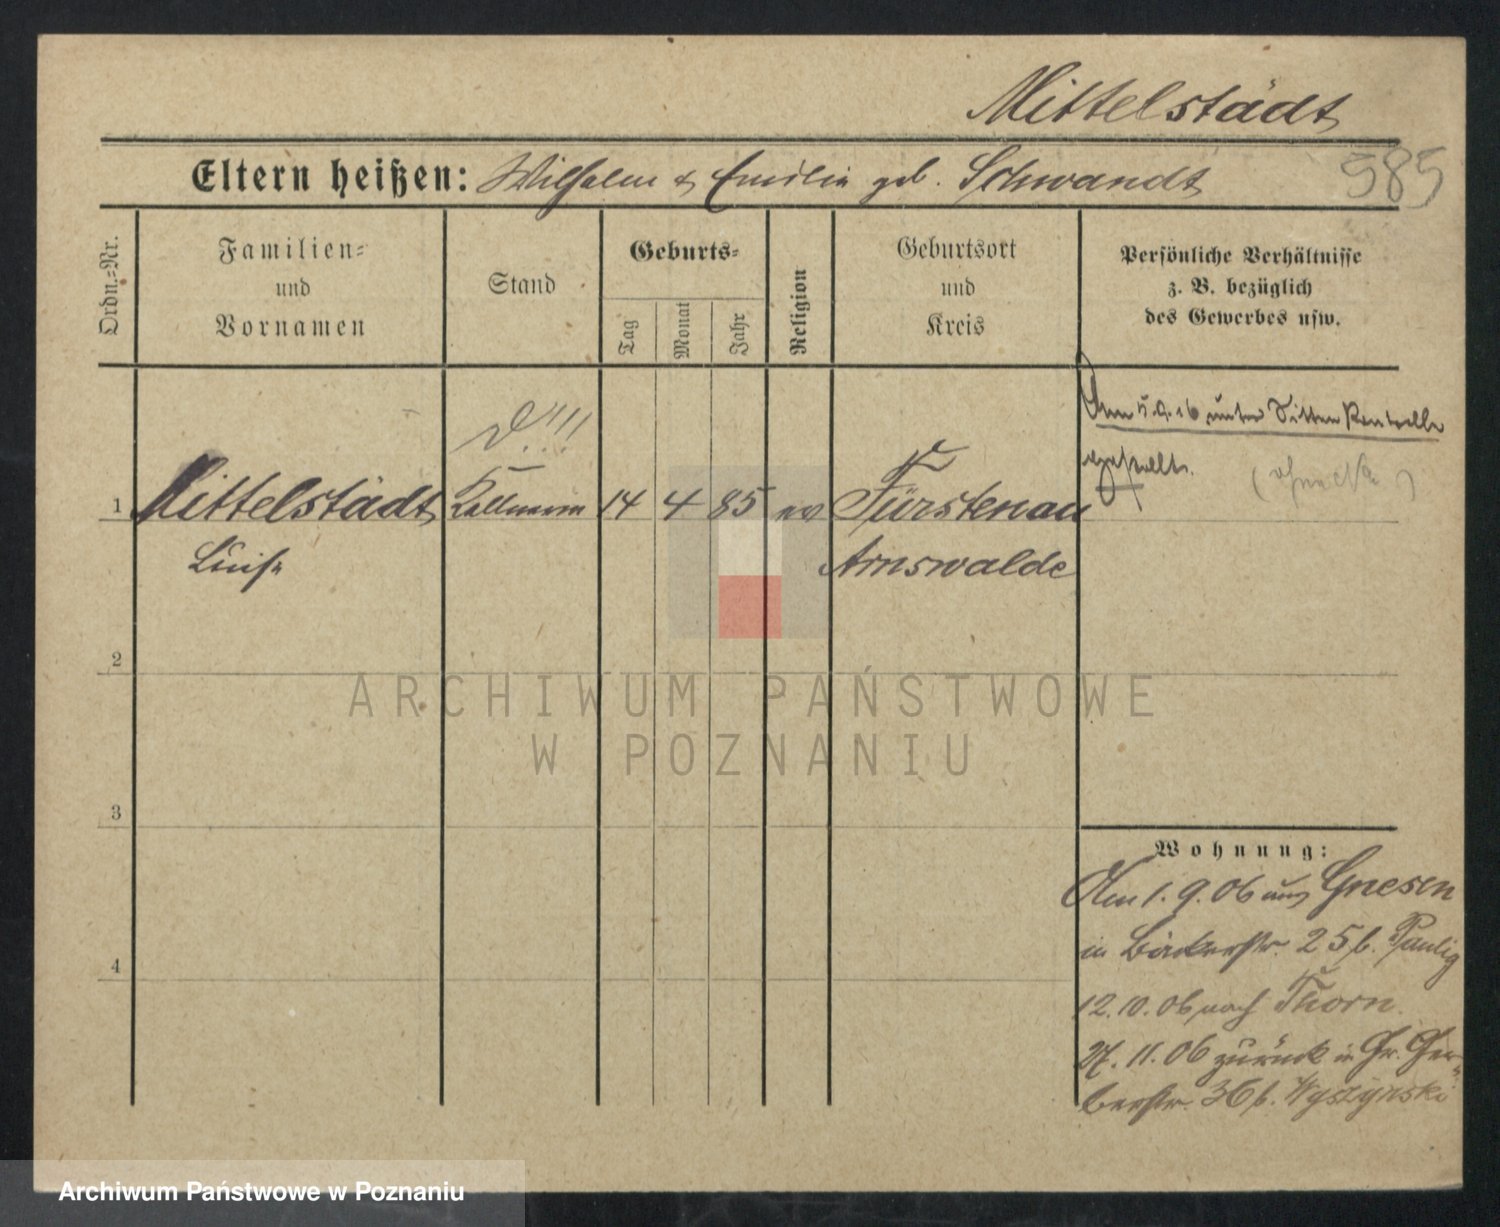 Mittelstädt
Eltern heißen: Wilhelm & Emilie geb. Schwandt
585
Ordn.-Nr.
Familien-
und
Vornamen
Stand
Geburts-
Tag
Monat
Jahr
Religion
Geburtsort
und
Kreis
Persönliche Verhältnisse
z. B. bezüglich
des Gewerbes usw.
Am 5.9.16 unter Sitten Kontrolle
gestellt.
1 Mittelstädt Kellnerin 14 4 85 ev Fürstenau
Luise Arnswalde
2
3
4
Wohnung:
Am 1.9.06 aus Gnesen
in Bäckerstr. 25 b. Paulig
12.10.06 nach Thorn.
27.11.06 zurück in Gr. Ger-
berstr. 36 b. Wyszynski
ARCHIWUM PAŃSTWOWE
W POZNANIU
Archiwum Państwowe w Poznaniu